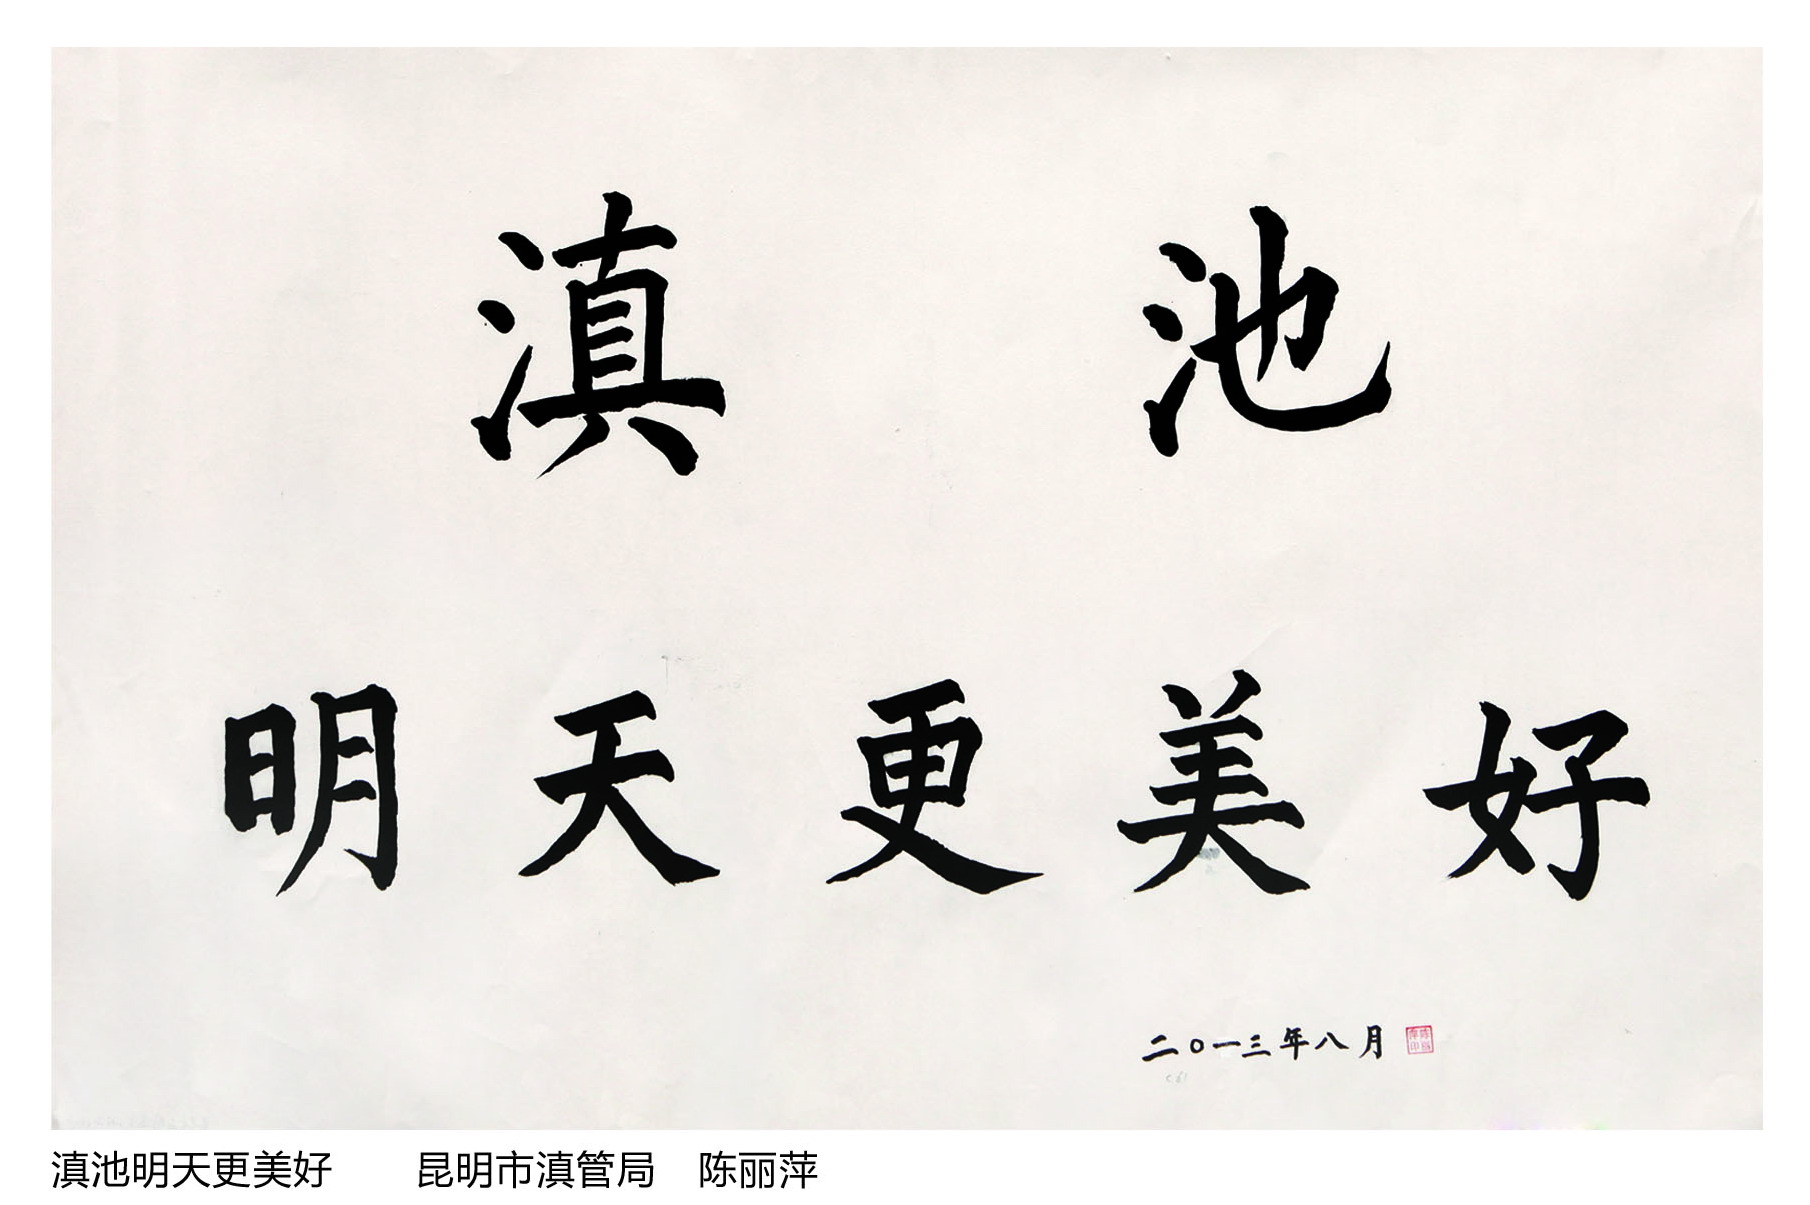 滇池
明天更美好
二〇一三年八月
滇池明天更美好 昆明市滇管局 陈丽萍